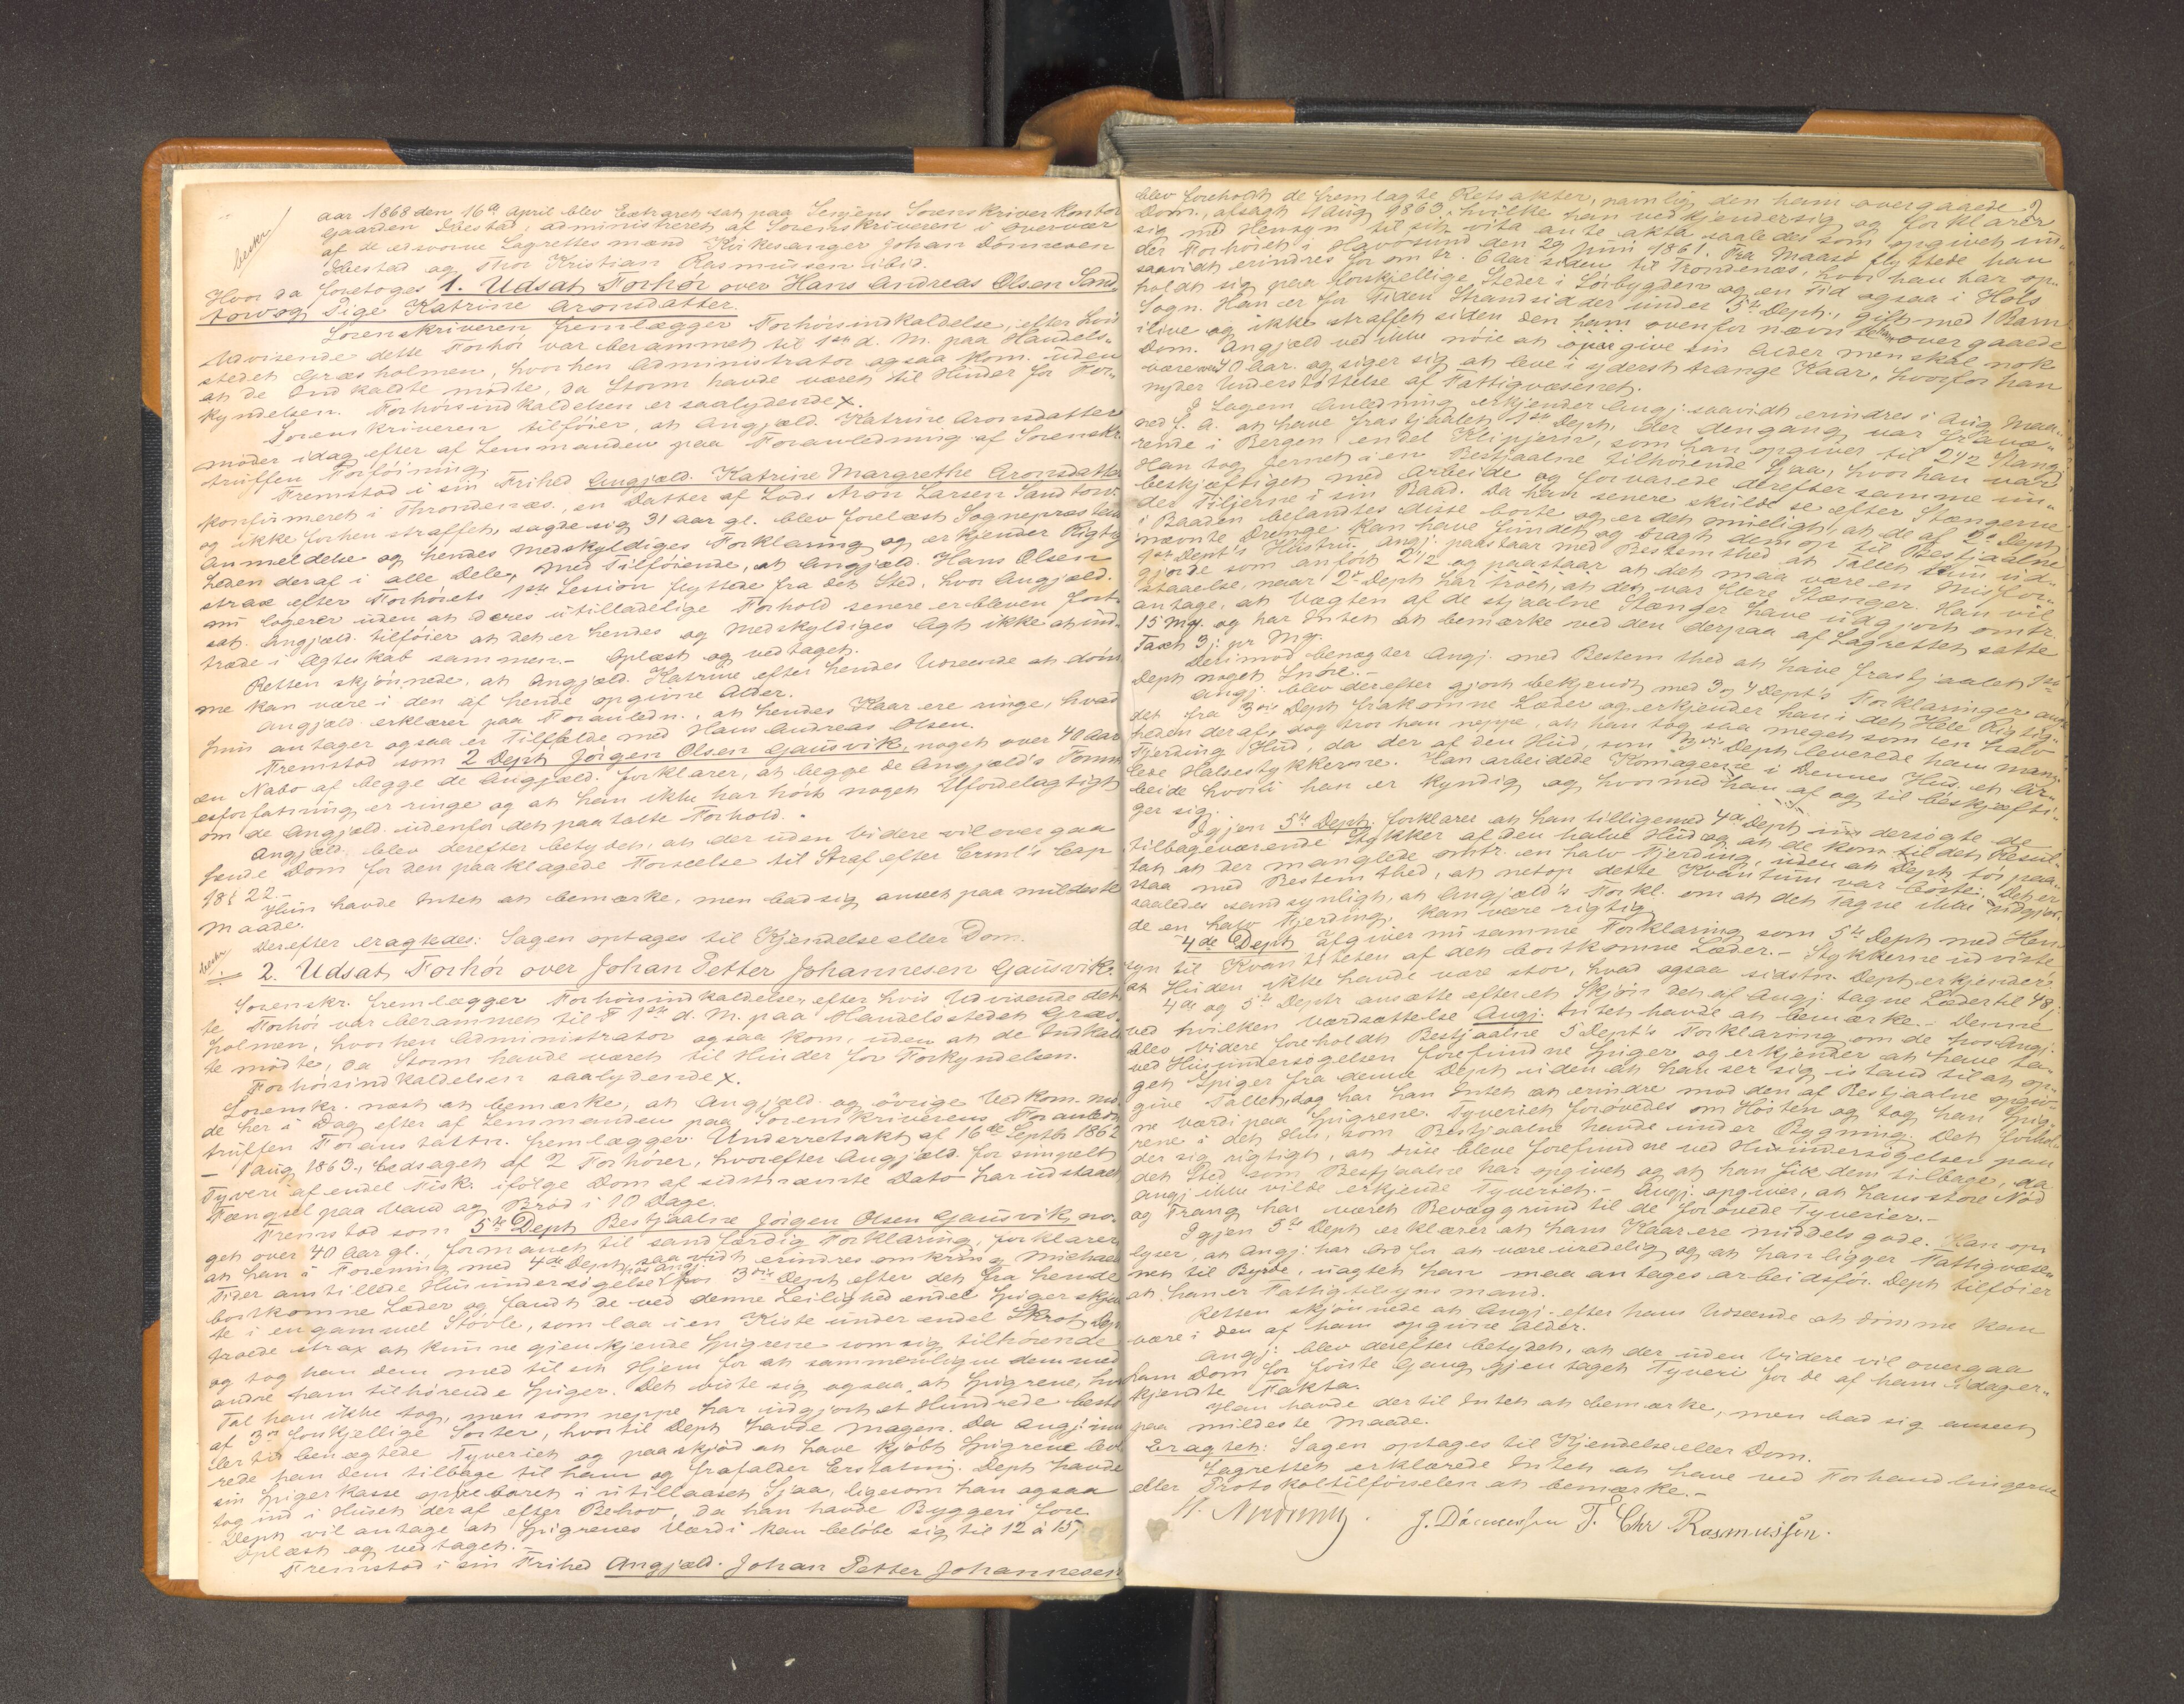 beskr
aar 1868 den 16de April blev Extraret sat paa Senjens Sorenskriver kontor
Gaarden Ibestad, administreret af Sorenskriveren i Overvær
af de edsvorne Lagrettes mænd Kirkesanger Johan Dönnesen
Ibestad og Thor Kristian Rasmussen ibid.
Hvor da foretoges 1. Udsat Forhör over Hans Andreas Olsen Sand-
torv og Pige Katrine Aronsdatter.
Sorenskriveren fremlægger Forhörsindkaldelse, efter hvis
Udvisende dette Forhör var berammet til 1ste d. M. paa Handels-
stedet Græsholmen, hvorhen Administrator ogsaa kom. uden
at de Indkaldte mödte, da Storm havde været til Hinder for For-
kyndelsen. Forhörsindkaldelsen er saalydende X.
Sorenskriveren tilföier, at Angjæld. Katrine Aronsdatter
möder idag efter af Lensmanden paa Foranledning af Sorenskr.
truffen Forföining.
Fremstod i sin Frihed Angjæld. Katrine Margrethe Aronsdatter
konfirmeret i Throndenæs, en Datter af Lods Aron Larsen Sandtorv
og ikke forhen straffet, sagde sig 31 aar gl. blev forelæst Sognepræstens
Anmeldelse og hendes Medskyldiges Forklaring og erkjender Rigtig-
heden deraf i alle Dele, med Tilföiende, at Angjæld. Hans Olsen
strax efter Forhörets 1ste Session flyttede fra det Sted, hvor Angjæld.
nu logerer uden at deres utilladelige Forhold senere er bleven fort-
sat. Angjæld. tilföier at det er hendes og Medskyldiges Agt ikke at ind-
træde i Agteskab sammen. - Oplæst og vedtaget.
Retten skjönnede, at Angjæld. Katrine efter hendes Udseende at döm-
me kan være i den af hende opgivne Alder.
Angjæld erklærer paa Foranledn., at hendes Kaar ere ringe, hvad
hun antager ogsaa er Tilfælde med Hans Andreas Olsen.
Fremstod som 2 Dept Jörgen Olsen Gausvik, noget over 40 Aar
en Nabo af begge de Angjæld. forklarer, at begge de Angjæld's Formu-
esforfatning er ringe og at han ikke har hört noget Ufordelagtigt
om de Angjæld. udenfor det paatalte Forhold. -
Angjæld. blev derefter betydet, at der uden Videre vil overgaa
hende Dom for den paaklagede Forseelse til Straf efter Crml's Cap
18 § 22.
Hun havde Intet at bemærke, men bad sig anseet paa mildeste
Maade.
Derefter eragtedes: Sagen optages til Kjendelse eller Dom.
beskr
2. Udsat Forhör over Johan Petter Johannesen Gausvik.
Sorenskr. fremlægger Forhörsindkaldelse, efter hvis Udvisende det-
te Forhör var berammet til 1ste d. M. paa Handelsstedet Græs
holmen, hvorhen Administrator ogsaa kom, uden at de Indkald
te mödte, da Storm havde været til Hinder for Forkyndelsen.
Forhörsindkaldelsen saalydende X.
Sorenskr. næst at bemærke, at Angjæld. og övrige Vedkom. mö-
de her i Dag efter af Lensmanden paa Sorenskriverens Foranledn
truffen Foranstaltn. fremlægger Underretsakt af 16de Septb 1862
- 1 Aug 1863, ledsaget af 2 Forhörer, hvorefter Angjæld. for simpelt
Tyveri af endel Fisk. ifölge Dom af sidstnævnte Dato har udstaaet
Fængsel paa Vand og Bröd i 10 Dage.
Fremstod som 5te Dept Bestjaalne Jörgen Olsen Gausvik, no-
get over 40 Aar gl., formanet til sandfærdig Forklaring, forklarer
at han i Forening med 4de Dept, saavidt erindres omkring Michaeli
Tider anstillede Husundersögelse hos Angj. for 3die Dept efter det fra hende
bortkomne Læder og fandt de ved denne Leilighed endel Spiger skjul
te i en gammel Stövle, som laa i en Kiste under endel Skrot Dept
troede strax at kunne gjenkjende Spigrene som sig tilhörende
og tog han dem med til sit Hjem for at sammenligne dem med
andre ham tilhörende Spiger. Det viste sig ogsaa, at Spigrene, hvis
Tal han ikke tog, men som neppe har udgjort et Hundrede bestod
af 3de forskjellige Sorter, hvortil Dept havde Magen. Da Angj. imid
lertid benægtede Tyveriet og paaskjöd at have kjöbt Spigrene leve
rede han dem tilbage til ham og frafalder Erstatning. Dept havde
sin Spigerkasse opbevaret i utillaaset Sjaa, ligesom han ogsaa
tog ind i Huset deraf efter Behov, da han havde Byggeri fore
Dept vil antage at Spigrenes Værdi kan belöbe sig til 12 à 15 ß
Oplæst og vedtaget. -
Fremstod i sin Frihed Angjæld. Johan Petter Johannesen
2
blev foreholdt de fremlagte Retsakter, namlig den ham overgaaede
Dom, afsagt 1 Aug 1863, hvilke han vedkjender sig og forklarer
sig med Hensyn til sit vita ante akta saaledes som opgivet un-
der Forhöret i Havösund den 29 Juni 1861. Fra Maasö flyttede han
saavidt erindres for omtr. 6 Aar siden til Trondenæs, hvor han har op-
holdt sig paa forskjellige Steder i Sörbygden og en Tid ogsaa i Hols
Sogn. Han er for Tiden Strandsidder under 3die Dept, gift med 1 Barn
ilive og ikke straffet siden den ham ovenfor nævnte overgaaede
Dom. Angjæld ved ikke nöie at opgive sin Alder men skal nok
være 40 Aar. og siger sig at leve i yderst trange Kaar, hvorfor han
nyder Understöttelse af Fattigvæsenet.
I Sagens Anledning erkjender Angj. saavidt erindres i Aug Maa-
ned f. A. at have frastjaalet 1ste Dept, der dengang var fravæ-
rende i Bergen endel Klipjern, som han opgiver til 2 1/2 Stang.
Han tog Jernet i en Bestjaalne tilhörende Sjaa, hvor han var
beskjæftiget med Arbeide og forvarede derefter samme un-
der Tiljerne i sin Baad. Da han senere skulde se efter Stængerne
i Baaden befandtes disse borte og er det mueligt, at de af 2de Dept
nævnte Drenge kan have fundet og bragt dem op til Bestjaalne
1ste Dept's Hustru. Angj. paastaar med Bestemthed at Tallet kun ud-
gjorde som anfört 2 1/2 og paastaar at det maa være en Misfor-
staaelse, naar 2de Dept har troet, at det var flere Stænger. Han vil
antage, at Vægten af de stjaalne Stænger have udgjort omtr.
15 Mg. og har Intet at bemærke ved den derpaa af Lagrettet satte
Taxt 3 ß pr Mg.
Derimod benægter Angj. med Bestemthed at have frastjaalet 1ste
Dept noget Snöre. -
Angj. blev derefter gjort bekjendt med 3 og 4 Dept's Forklaringer ang.
det fra 3die Dept frakomne Læder og erkjender han i det Hele Rigtig-
heden deraf, dog tror han neppe, at han tog saa meget som en halv
Fjerding Hud, da der af den Hud, som 3die Dept leverede ham mang-
lede Halsestykkerne. Han arbeidede Komagerne i Dennes Hus, et Ar-
beide hvori han er kyndig og hvormed han af og til beskjæfti-
ger sig.
Igjen 5te Dept. forklarer at han tilligemed 4de Dept undersögte de
tilbageværende Stykker af den halve Hud og at de kom til det Resul-
tat at der manglede omtr. en halv Fjerding, uden at Dept tör paa-
staa med Bestemthed, at netop dette Kvantum var borte. Det er
saaledes sandsynligt, at Angjæld's Forkl. om at det tagne ikke udgjor-
de en halv Fjerding, kan være rigtig.
4de Dept afgiver nu samme Forklaring som 5te Dept med Hen-
syn til Kvantiteten af det bortkomne Læder. - Stykkerne udviste
at Huden ikke havde være stor, hvad ogsaa sidstn. Dept erkjender.
4de og 5te Dept ansætte efter et Skjön det af Angj. tagne Læder til 48 ß
ved hvilken Værdsættelse Angj. Intet havde at bemærke. - Denne
blev videre foreholdt Bestjaalne 5 Dept's Forklaring om de hos Angj.
ved Husundersögelsen forefundne Spiger og erkjender at have ta-
get Spiger fra denne Dept uden at han ser sig istand til at op-
give Tallet, dog har han Intet at erindre mod den af Bestjaalne opgiv-
ne Værdi paa Spigrene. Tyveriet forövedes om Hösten og tog han Spig-
rene i det Hus, som Bestjaalne havde under Bygning. Det forhol-
der sig rigtigt, at disse bleve forefundne ved Husundersögelsen paa
det Sted som Bestjaalne har opgivet og at han fik dem tilbage, da
Angj. ikke vilde erkjende Tyveriet. - Angj. opgiver, at hans store Nöd
og Trang har været Bevæggrund til de forövede Tyverier. -
Igjen 5te Dept erklærer at hans Kaar ere middels gode. Han op-
lyser, at Angj. har Ord for at være uredelig og at han ligger Fattigvæse-
net til Byrde, uagtet han maa antages arbeidsför. Dept tilföier
at han er Fattigtilsynsmand.
Retten skjönnede at Angj. efter hans Udseende at dömme kan
være i den af ham opgivne Alder.
Angj. blev derefter betydet, at der uden Videre vil overgaa
ham Dom for förste Gang gjentaget Tyveri for de af ham idag er-
kjendte Fakta.
Han havde dertil Intet at bemærke, men bad sig anseet
paa mildeste Maade.
Eragtet: Sagen optages til Kjendelse eller Dom.
Lagrettet erklærede Intet at have ved Forhandlingerne
eller Protokoltilförselen at bemærke. -
J. Dönnessen T. Chr Rasmussen.